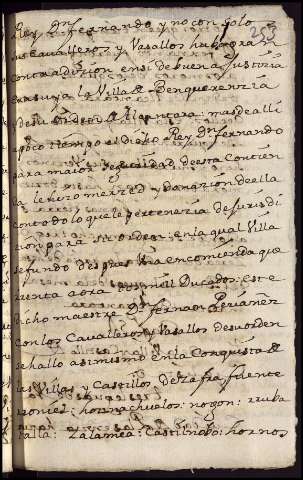 253
Rey Dn. Fernando y no con solo
sus Cavalleros, y Vasallos hubo gran
contradizion en si de buena Justizia
era suya la Villa de Benquerenzia
o de su orden de Alcantara, mas de alli
a poco tiempo el dicho Rey Dn. fernando
para maior seguridad desta Contien
da le hizo merzed y donazion de ella
con todo lo que le pertenezia de jurisdi
cion para su orden; en la qual Villa
se fundo despues una encomienda que
renta aora dos mil Ducados: Este
dicho maestre Dn. fernan Perianez
con los Cavalleros y Vasallos de su orden
se hallo asimismo en la Conquista de
las Villas, y Castillos de Zafra, fuente
Hornachuelos: mogon: zuba
Zalamea: Castilnobo: hornos